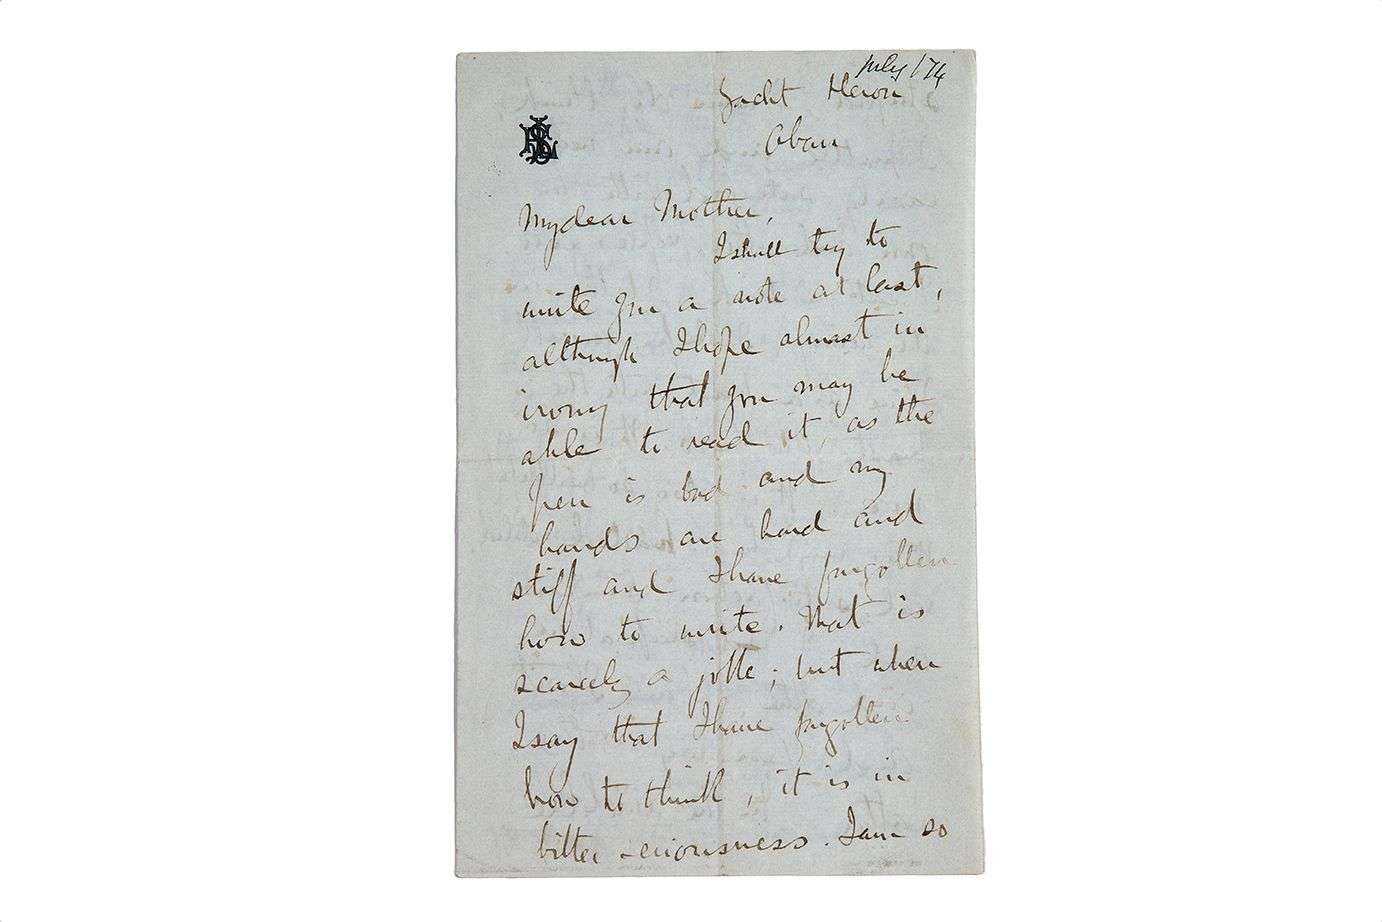 July /74
Yacht Heron
Oban
RLS
My dear Mother,
I shall try to
write you a note at last,
although I hope almost in
irony that you may be
able to read it, as the
pen is bad and my
hands are hard and
stiff and I have forgotten
how to write. That is
scarcely a joke; but when
I say that I have forgotten
how to think, it is in
bitter seriousness. I am so